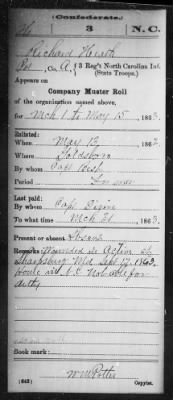 (Confederate.)
H 3 N.C.
Richard Heath
Co. A, 3 Reg't North Carolina Inf.
(State Troops.)
Appears on
Company Muster Roll
of the organization named above,
for Mch 1 to May 15, 1863
Enlisted:
When May 13, 1862
Where Goldsboro
By whom Capt
Period War
Last paid:
By whom Capt
To what time Mch 31, 1863
Present or absent Absent
Remarks: Wounded in Action at
Sharpsburg Md Sept 17, 1862,
Not able for
duty
Book mark:
(642) Copyist.